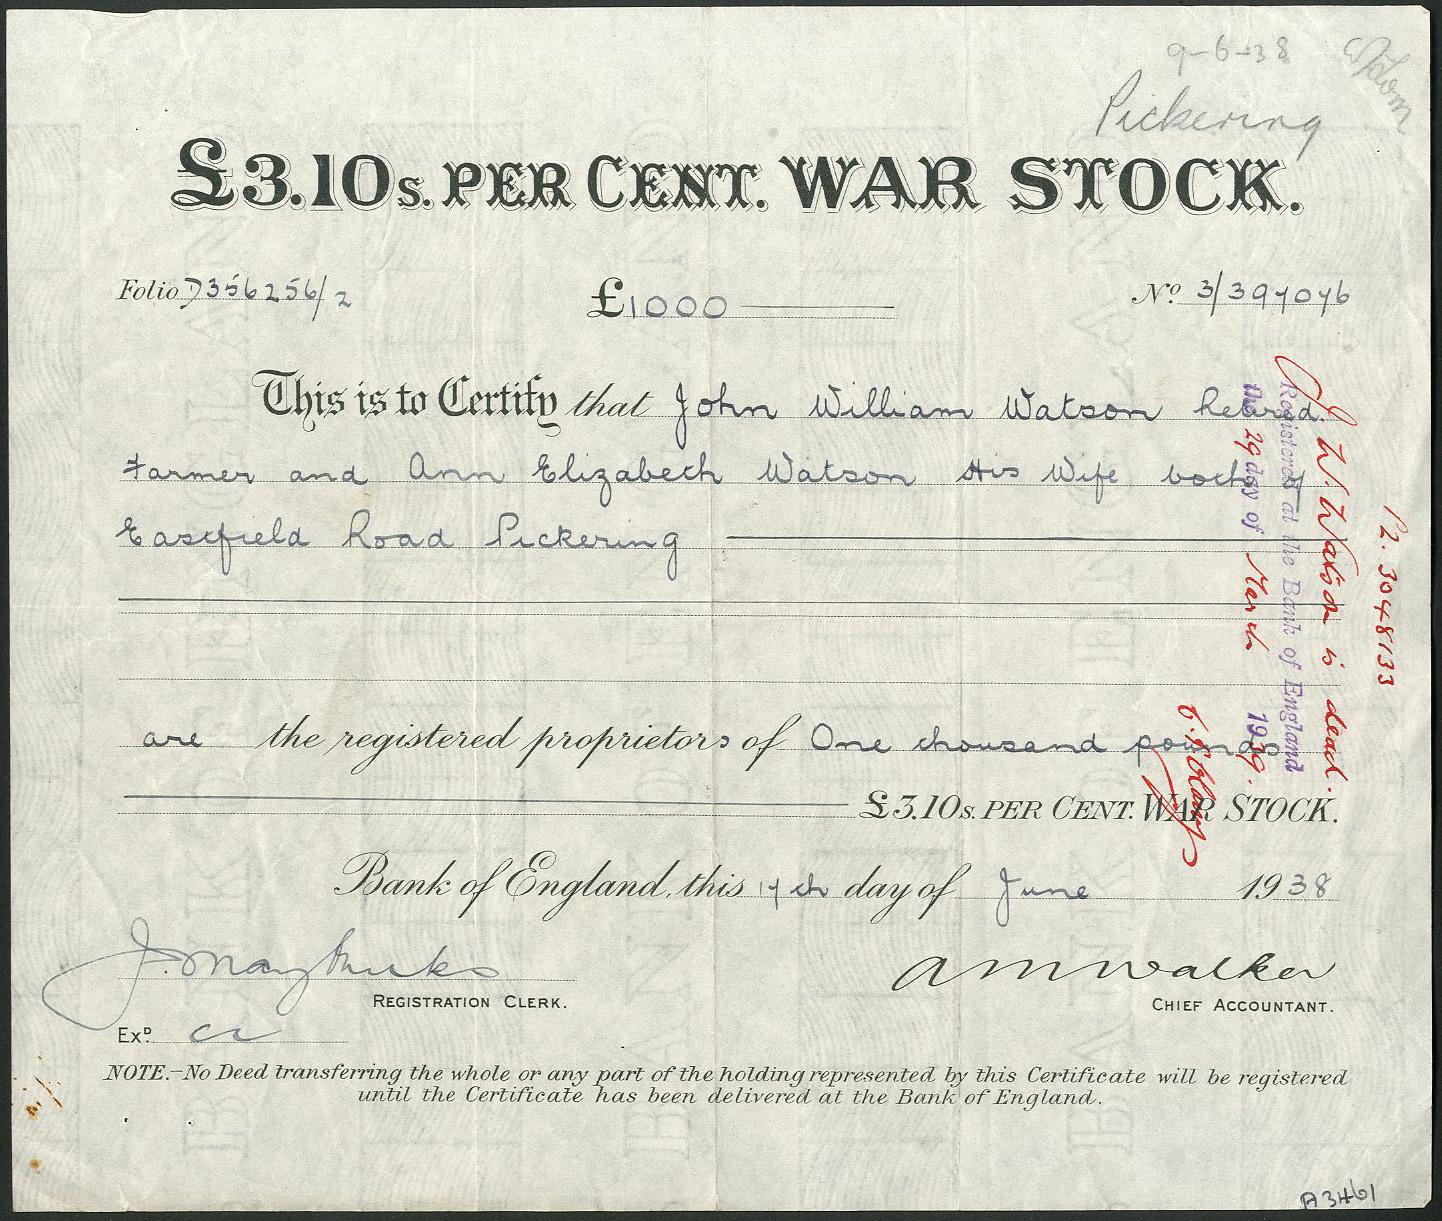 9-6-38
Pickering
£3.10s. PER CENT. WAR STOCK.
Folio 7356256/2 £1000 No. 3/397076
This is to Certify that John William Watson Retired
Farmer and Ann Elizabeth Watson His Wife both of
Eastfield Road Pickering
are the registered proprietors of One thousand pounds
£3.10s. PER CENT. WAR STOCK.
Bank of England, this 17th day of June 1938
REGISTRATION CLERK.
A M Walker
CHIEF ACCOUNTANT.
Exd.
NOTE.–No Deed transferring the whole or any part of the holding represented by this Certificate will be registered
until the Certificate has been delivered at the Bank of England.
P2. 3048133
J. W. Watson is dead.
Registered at the Bank of England
the 29 day of March 1939.
A3461
BANK OF ENGLAND